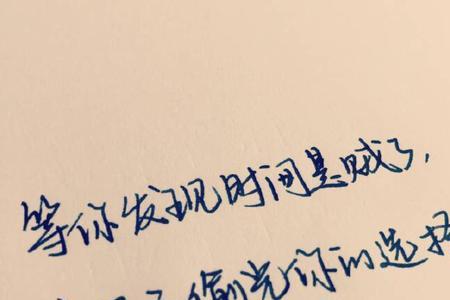 等你发现时间是贼了，
偷光你的选择